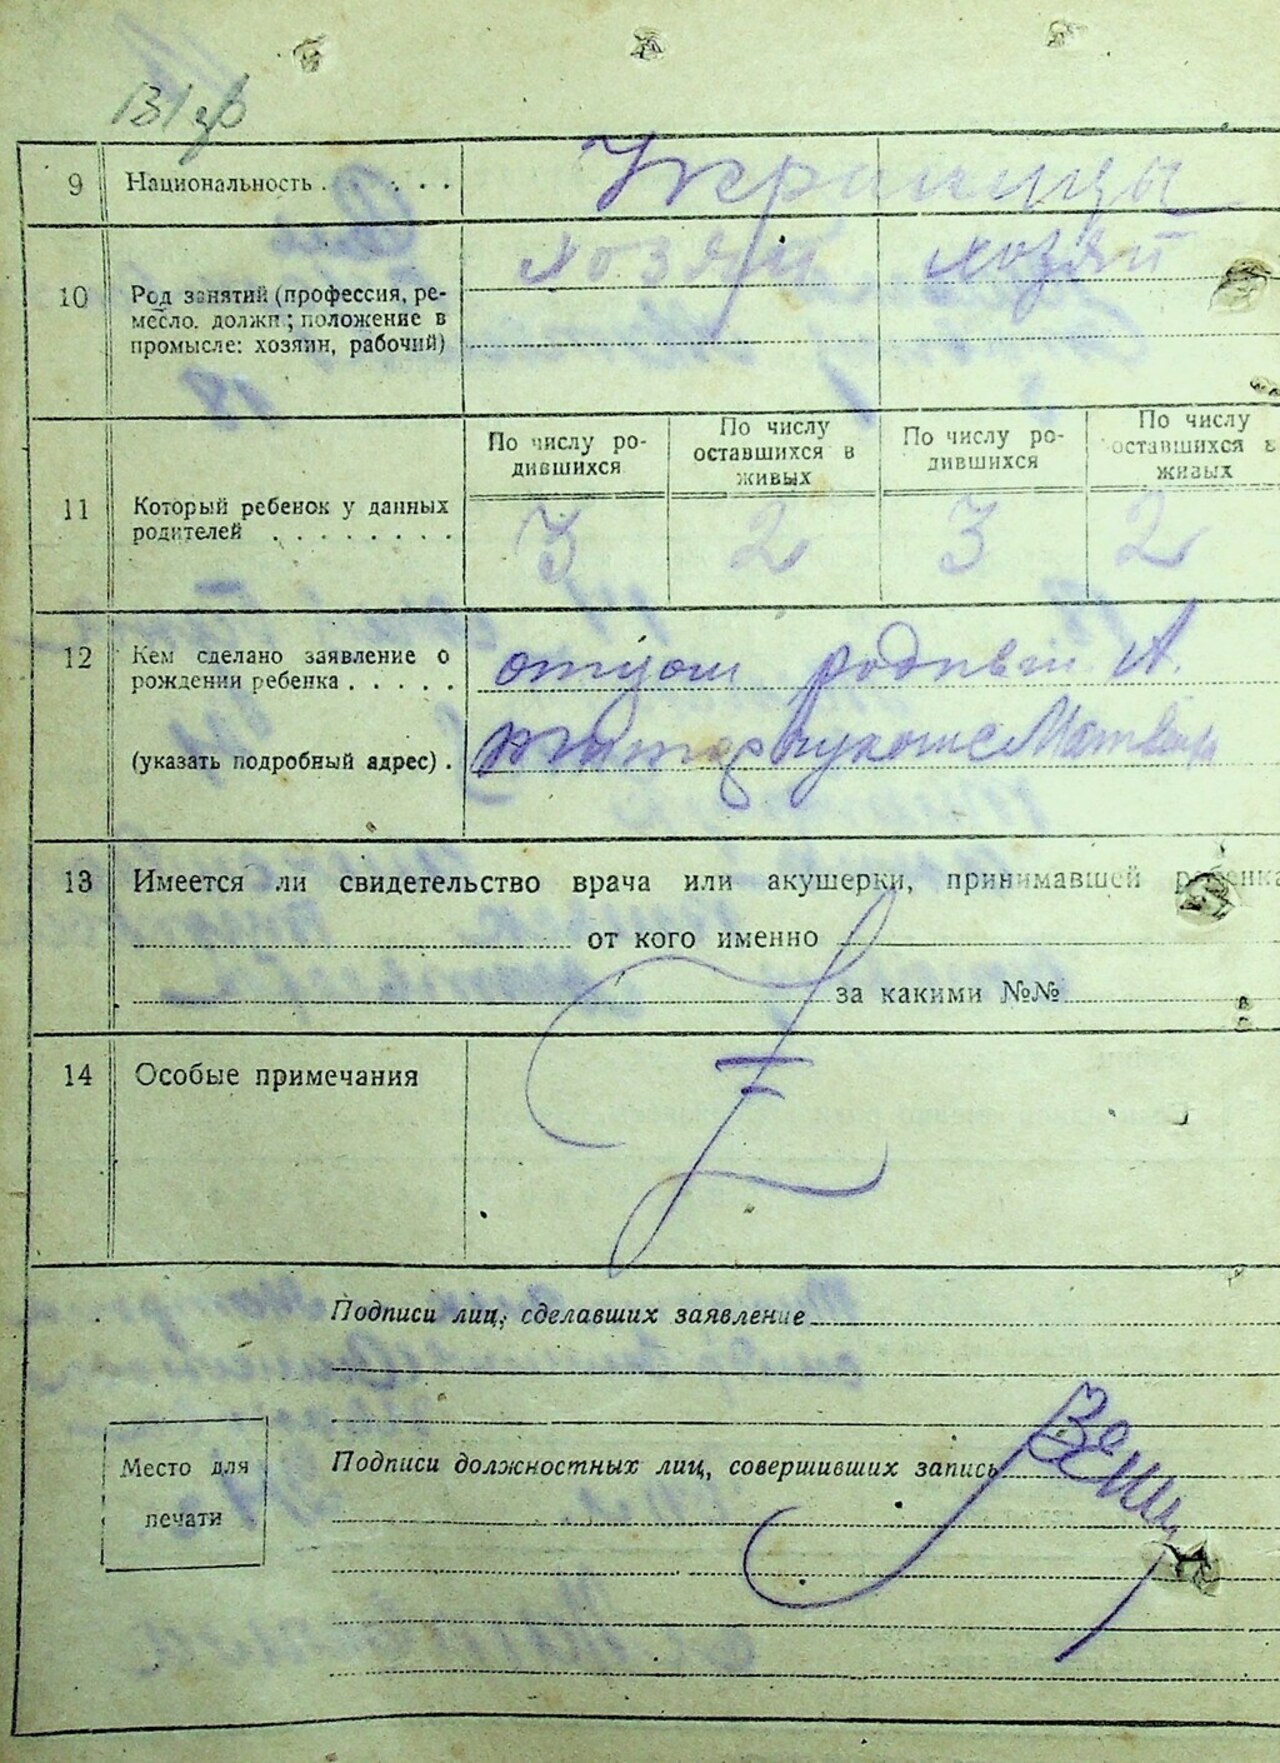 131
9 Национальность . . . . Украинцы
10 Род занятий (профессия, ре-
месло, должн; положение в
промысле: хозяин, рабочий)
хозяин хозяй
По числу ро-
дившихся
По числу
оставшихся в
живых
По числу ро-
дившихся
По числу
оставшихся в
живых
11 Который ребенок у данных
родителей . . . . . . . .
3 2 3 2
12 Кем сделано заявление о
рождении ребенка . . . . .
отцом А.
(указать подробный адрес) .
13 Имеется ли свидетельство врача или акушерки, принимавшей ребенка
от кого именно
за какими №№
14 Особые примечания
Подписи лиц, сделавших заявление
Место для
печати
Подписи должностных лиц, совершивших запись